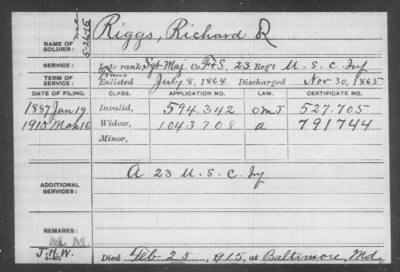 Riggs, Richard R
NAME OF SOLDIER:
5-26-76
SERVICE:
Late rank, Sgt Maj Co. F+S, 23 Reg't U. S. C. Inf
TERM OF SERVICE:
Enlisted July 8, 1864 Discharged Nov 30, 1865
DATE OF FILING. CLASS. APPLICATION NO. LAW. CERTIFICATE NO.
1887 Jan 19 Invalid, 594.342 527.705
1915 Mar 16 Widow, 1043708 a 791744
Minor,
ADDITIONAL SERVICES:
A 23 U. S. C. Inf
REMARKS:
M M
J.H.W. Died Feb 25, 1915, at Baltimore, Md.